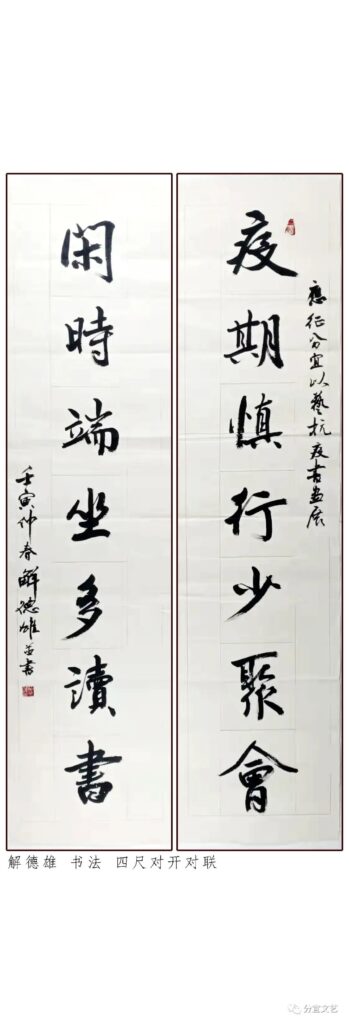 應征分宜以藝抗疫书画展
疫期慎行少聚會
閑時端坐多讀書
壬寅仲春解德雄並書
解德雄 书法 四尺对开对联
分宜文艺